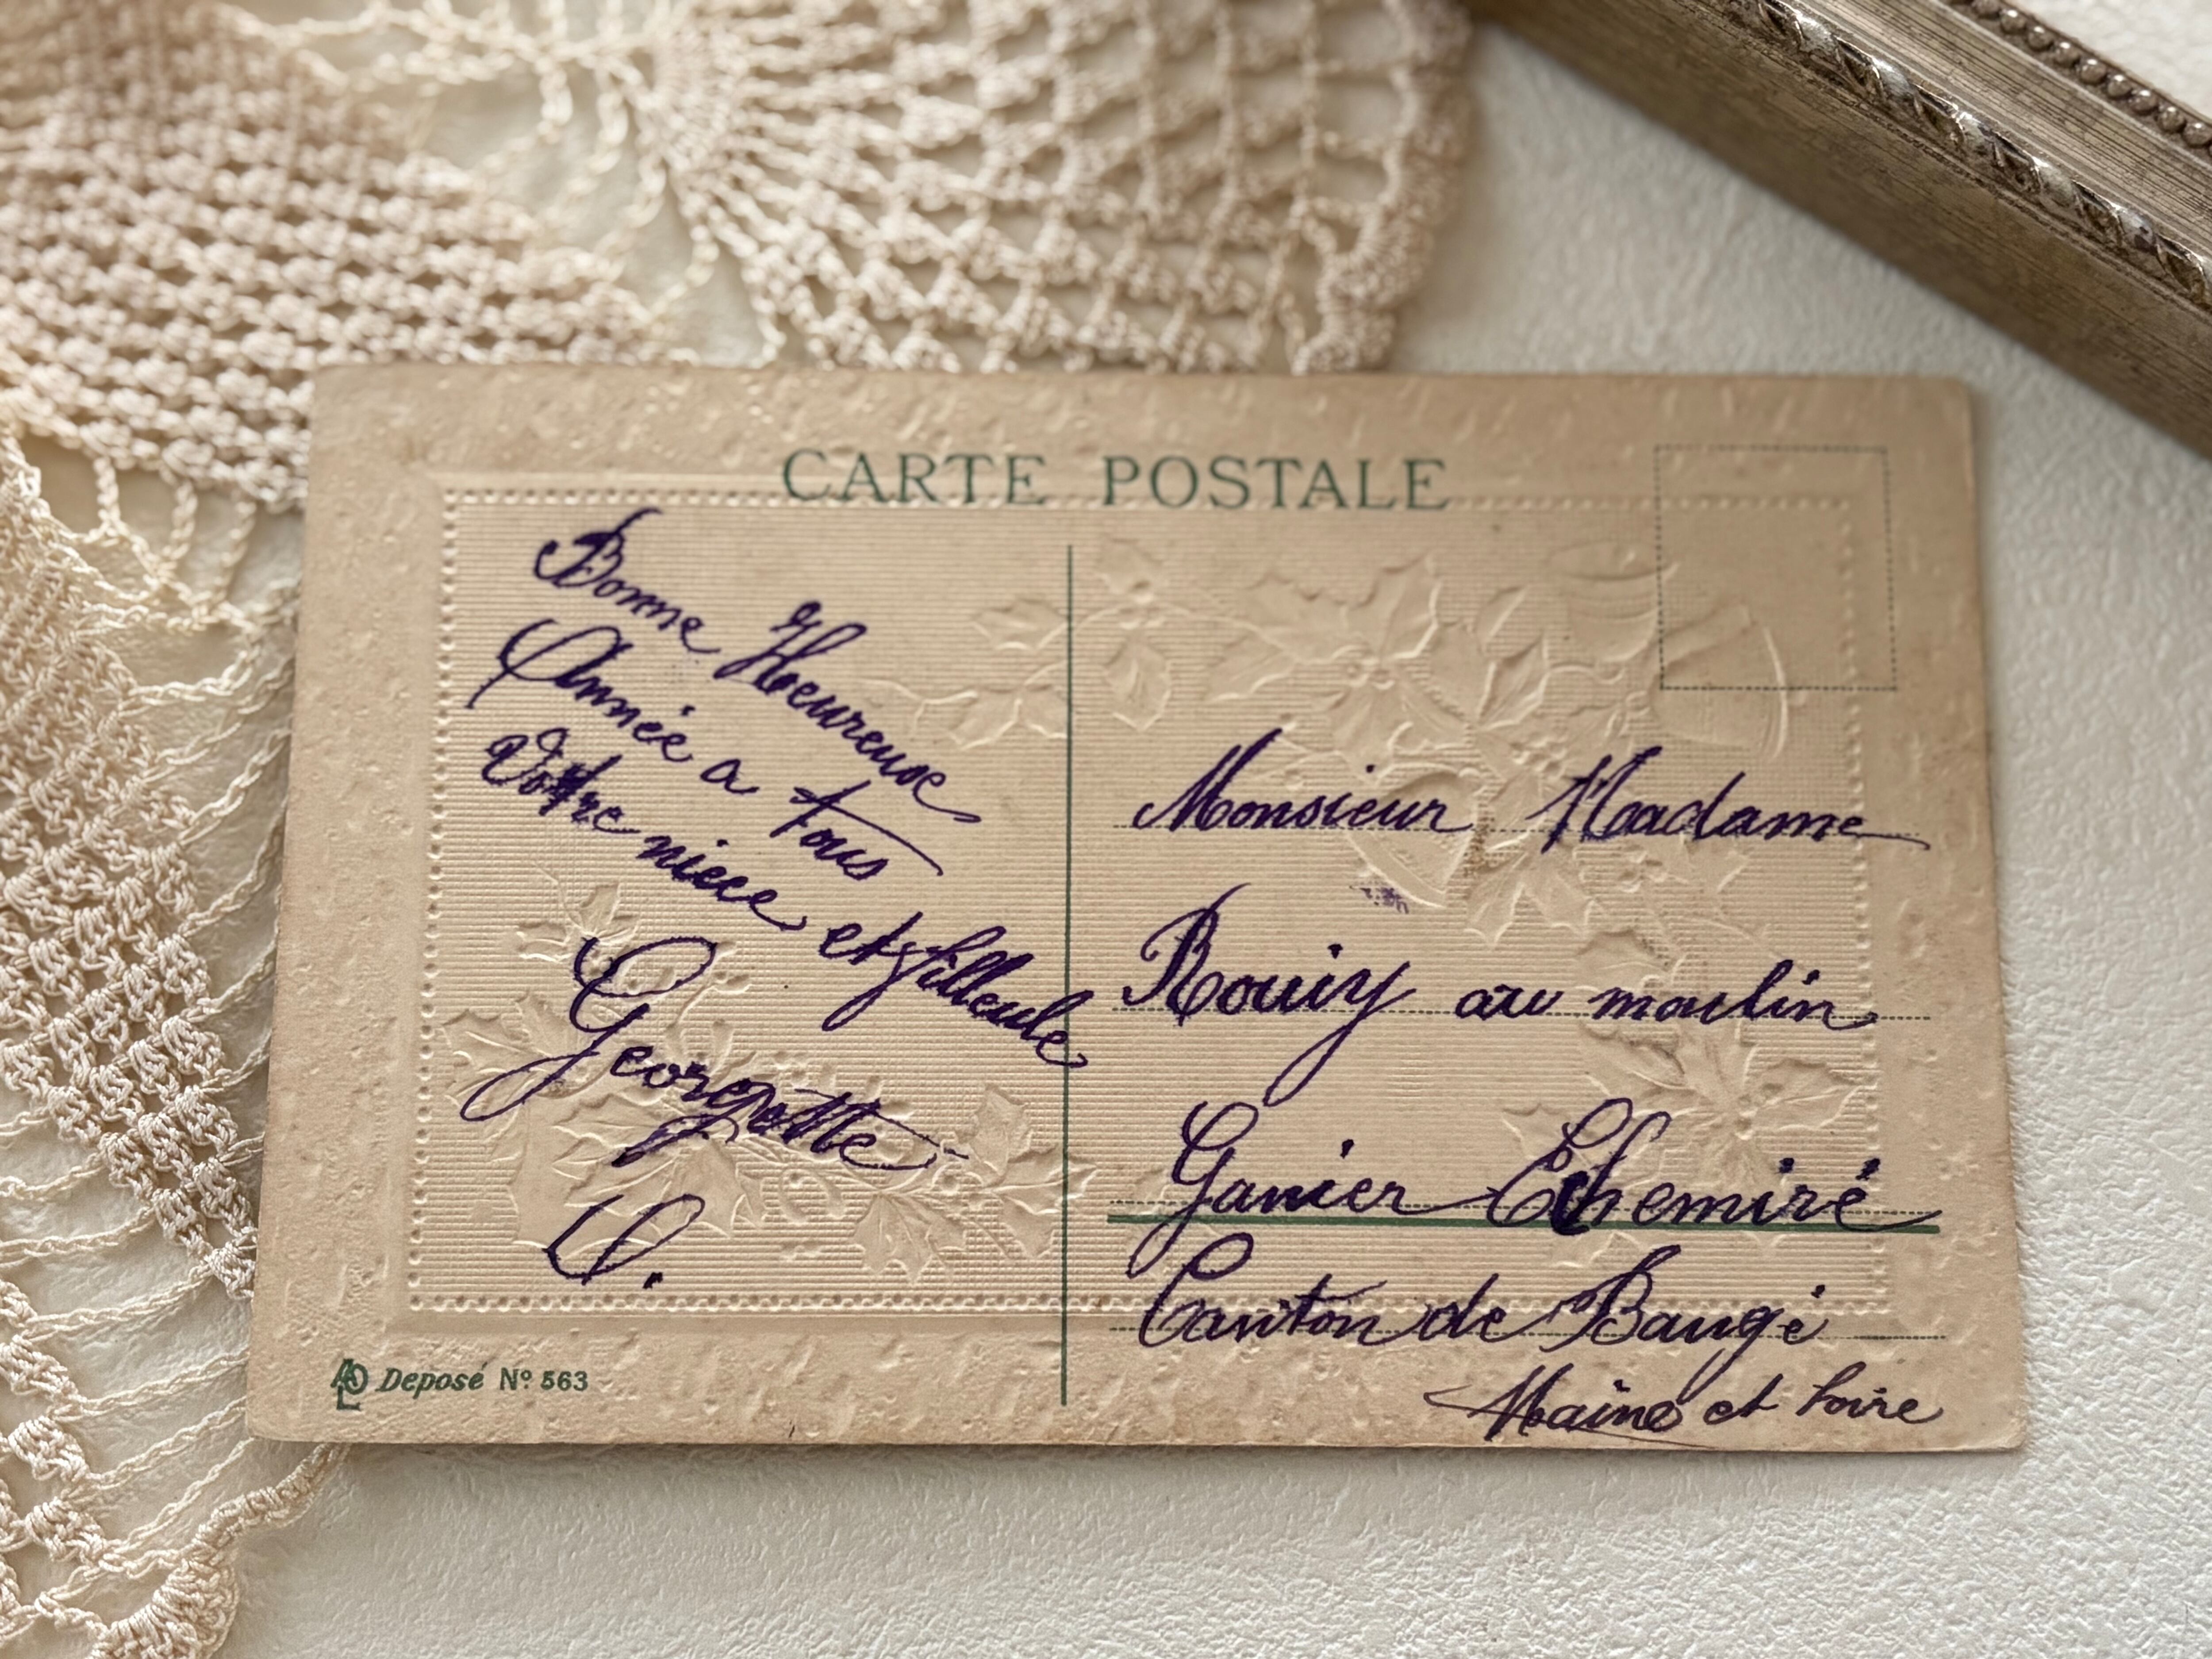 CARTE POSTALE
Bonne Heureuse
Année a tous
Votre niece et filleule
Georgette
O.
Monsieur Madame
Rouiy au moulin
Ganier Echemiré
Canton de Baugé
Maine et Loire
Deposé Nº 563